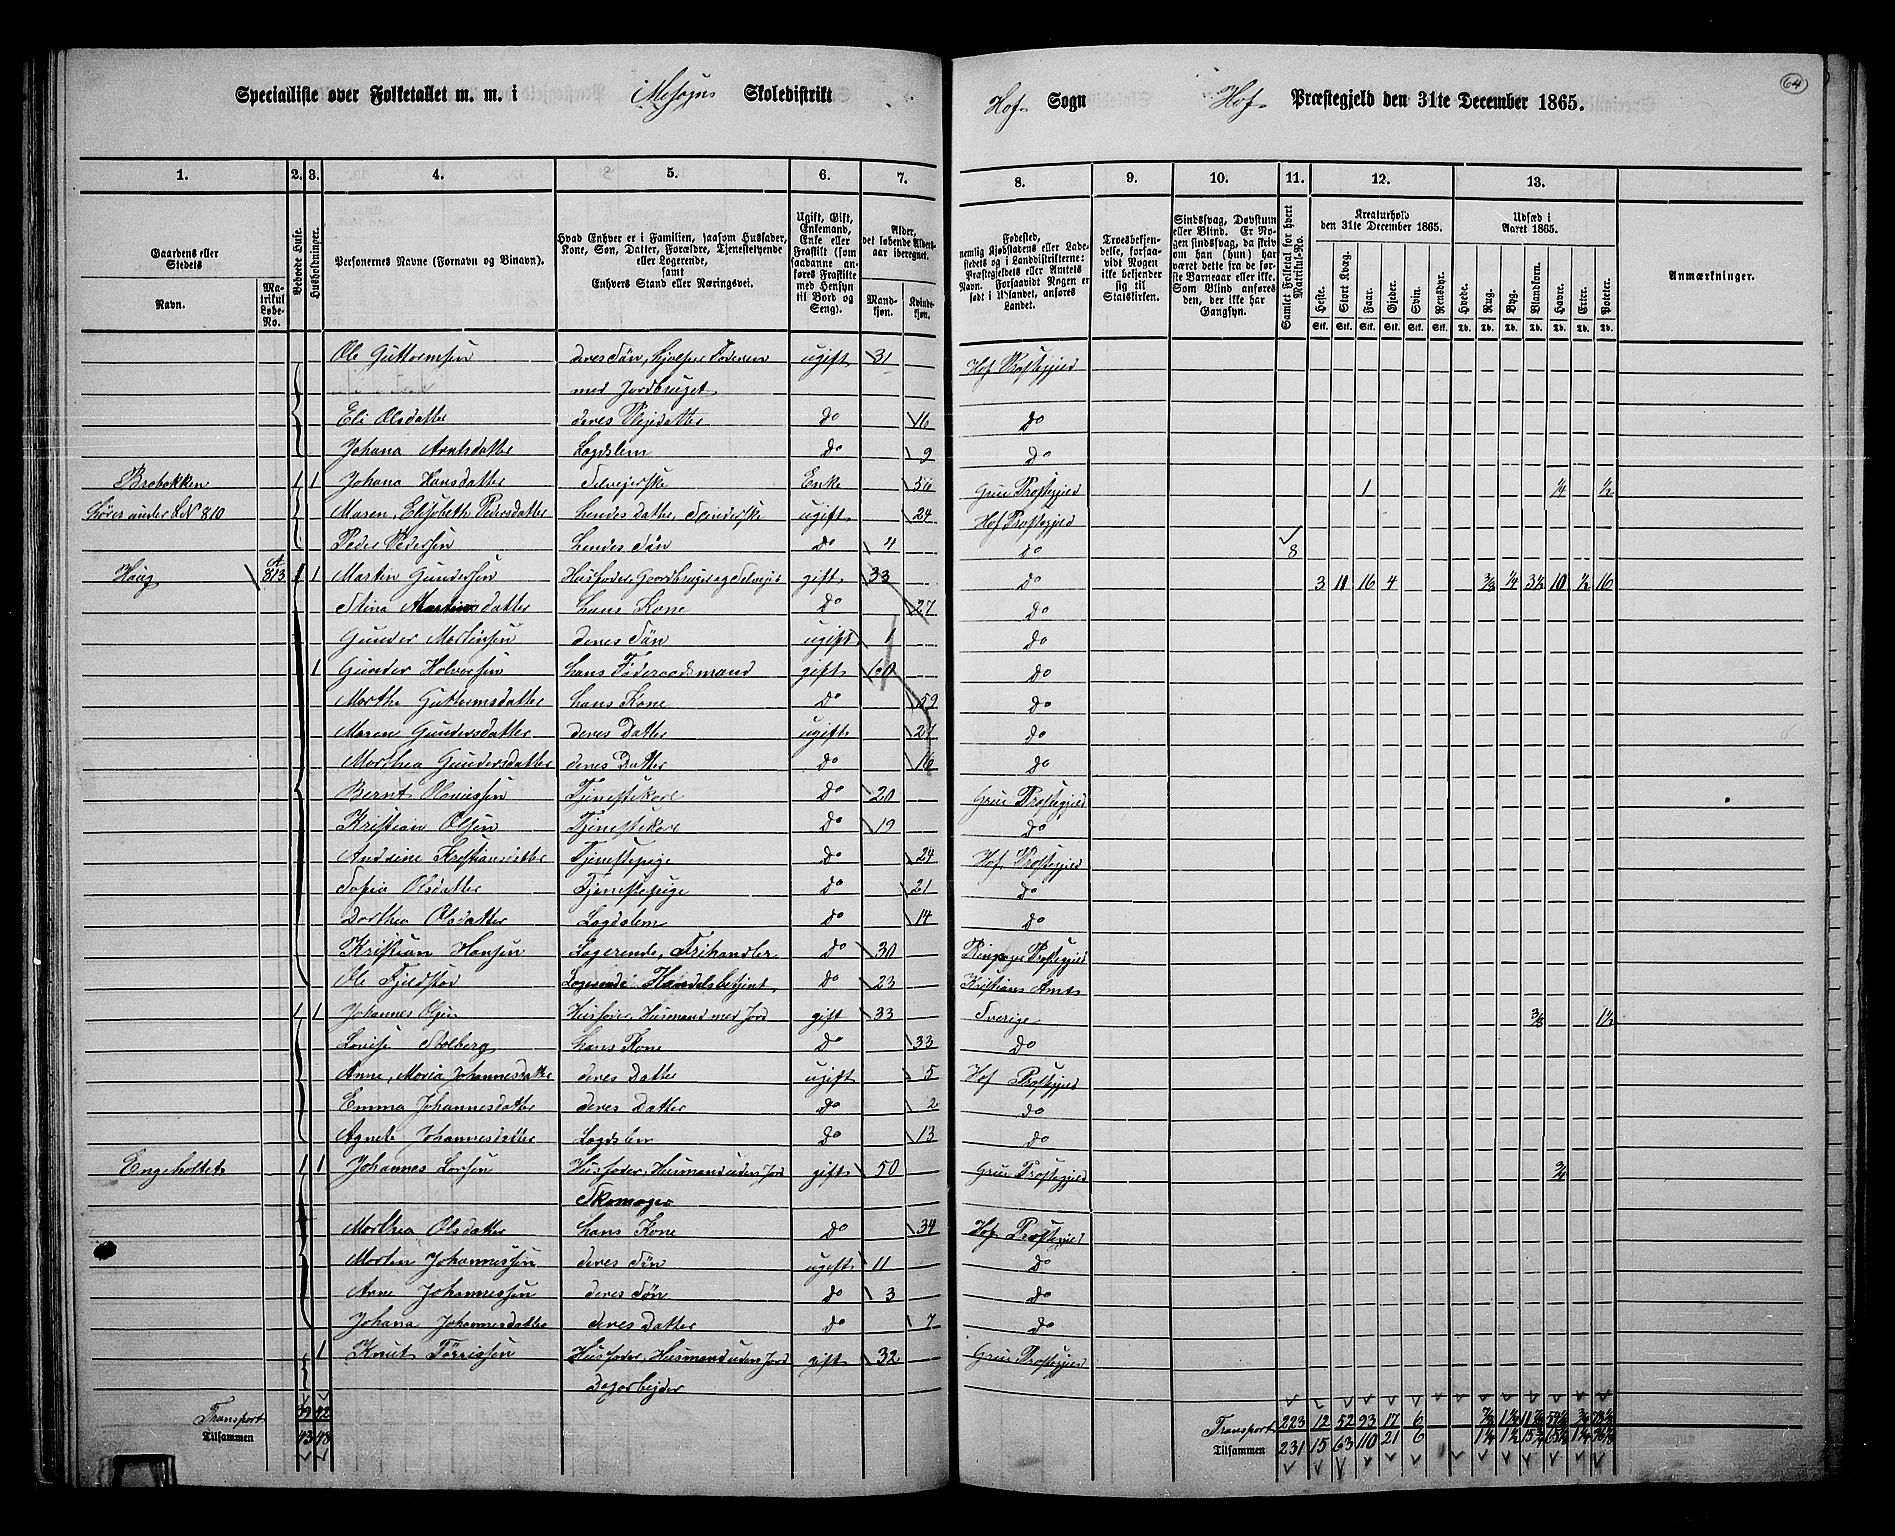 64
Specialliste over Folketallet m. m. i Mosogns Skoledistrikt Hof Sogn Hof Præstegjeld den 31te December 1865.
1. 2. 3. 4. 5. 6. 7. 8. 9. 10. 11. 12. 13.
Gaardens eller Stedets
Navn.
Matrikul Løbe-No.
Beboede Huse.
Husholdninger.
Personernes Navne (Fornavn og Binavn).
Hvad Enhver er i Familien, saasom Husfader, Kone, Søn, Datter, Forældre, Tjenestetyende eller Logerende, samt Enhvers Stand eller Næringsvei.
Ugift, Gift, Enkemand, Enke eller Fraskilt (som saadanne anføres Fraskilte med Hensyn til Bord og Seng).
Alder, det løbende Alders-aar iberegnet.
Mandkjøn.
Kvindekjøn.
Fødested, nemlig Kjøbstadens eller Ladestedets og i Landdistrikterne: Præstegjeldets eller Amtets Navn. Forsaavidt Nogen er født i Udlandet, anføres Landet.
Troesbekjendelse, forsaavidt Nogen ikke bekjender sig til Statskirken.
Sindssvag, Døvstum eller Blind. Er Nogen sindssvag, da skriv om han (hun) har været dette fra de første Barneaar eller ikke. Som Blind anføres den, der ikke har Gangsyn.
Samlet Folketal for hvert Matrikul-No.
Kreaturhold den 31te December 1865.
Heste. Stort Kvæg. Faar. Gjeder. Svin. Rensdyr.
Stk. Stk. Stk. Stk. Stk. Stk.
Udsæd i Aaret 1865.
Hvede. Rug. Byg. Blandkorn. Havre. Erter. Poteter.
Td. Td. Td. Td. Td. Td. Td.
Anmærkninger.
Ole Guttormsen deres Søn, hjelper Faderen ugift 31 Hof Præstegjeld
med Jordbruget
Eli Olsdatter deres Plejedatter Do 16 Do
Johana Arntsdatter Lægdslem Do 9 Do
Brobakken 1 1 Johana Hansdatter Selvejerske Enke 56 Grue Præstegjeld 1 1/4 1/2
hører under LN 810 Maren, Elisabeth Pedersdatter hendes datter, Spinderske ugift 24 Hof Præstegjeld
Peder Pedersen hendes Søn Do 4 Do 8
Haug A 813 1 1 Martin Gundersen Husfader, Gaardbruger og Selvejer gift 33 Do 3 11 16 4 3/8 1/4 3 1/2 10 1/2 16
Stina Martinsdatter hans Kone Do 27 Do
Gunder Martinsen deres Søn ugift 1 Do
1 Gunder Halvorsen hans Føderaadsmand gift 60 Do
Marthe Guttormsdatter hans Kone Do 59 Do
Maren Gundersdatter deres Datter ugift 21 Do
Marthea Gundersdatter deres Datter Do 16 Do
Bernt Olaussen Tjenestekarl Do 20 Grue Præstegjeld
Kristian Olsen Tjenestekarl Do 19 Do
Andrine Kristiansdatter Tjenestepige Do 24 Hof Præstegjeld
Sofia Olsdatter Tjenestepige Do 21 Do
Dorthea Olsdatter Lægdslem Do 14 Do
Kristian Hansen Logerende, Frihandler Do 30 Ringsager Præstegjeld
Ole Fjeldstad Logerende Handelsbetjent Do 23 Kristians Amt
1 1 Johannes Olsen Husfader, Husmand med Jord gift 33 Sverige 3/8 1 1/2
Lovise Stolberg hans Kone Do 33 Do
Anne, Maria Johannesdatter deres Datter ugift 5 Hof Præstegjeld
Emma Johannesdatter deres Datter Do 2 Do
Agnete Johannesdatter Lægdslem Do 13 Do
Engeholtet 1 1 Johannes Larsen Husfader, Husmand uden Jord gift 50 Grue Præstegjeld 3/4
Skomager
Marthea Olsdatter hans Kone Do 34 Hof Præstegjeld
Martin Johannessen deres Søn ugift 11 Do
Arne Johannessen deres Søn Do 3 Do
Johana Johannesdatter deres Datter Do 7 Do
1 Knut Tørrissen Husfader, Husmand uden Jord gift 32 Grue Præstegjeld
Dagarbejder
Transport 39 42 Transport 223 12 52 93 17 6
Tilsammen 43 48 Tilsammen 231 15 63 110 21 6